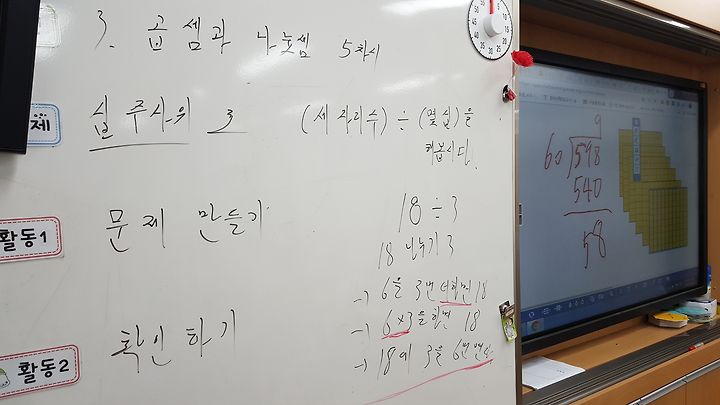 3. 곱셈과 나눗셈 5차시
제 십 주사위 3 (세 자리수) ÷ (몇십)을
해봅시다.
활동1 문제 만들기
18 ÷ 3
18 나누기 3
→ 6을 3번 더하면 18
→ 6×3을 하면 18
→ 18에 3을 6번
활동2 확인하기
9
60 598
540
58